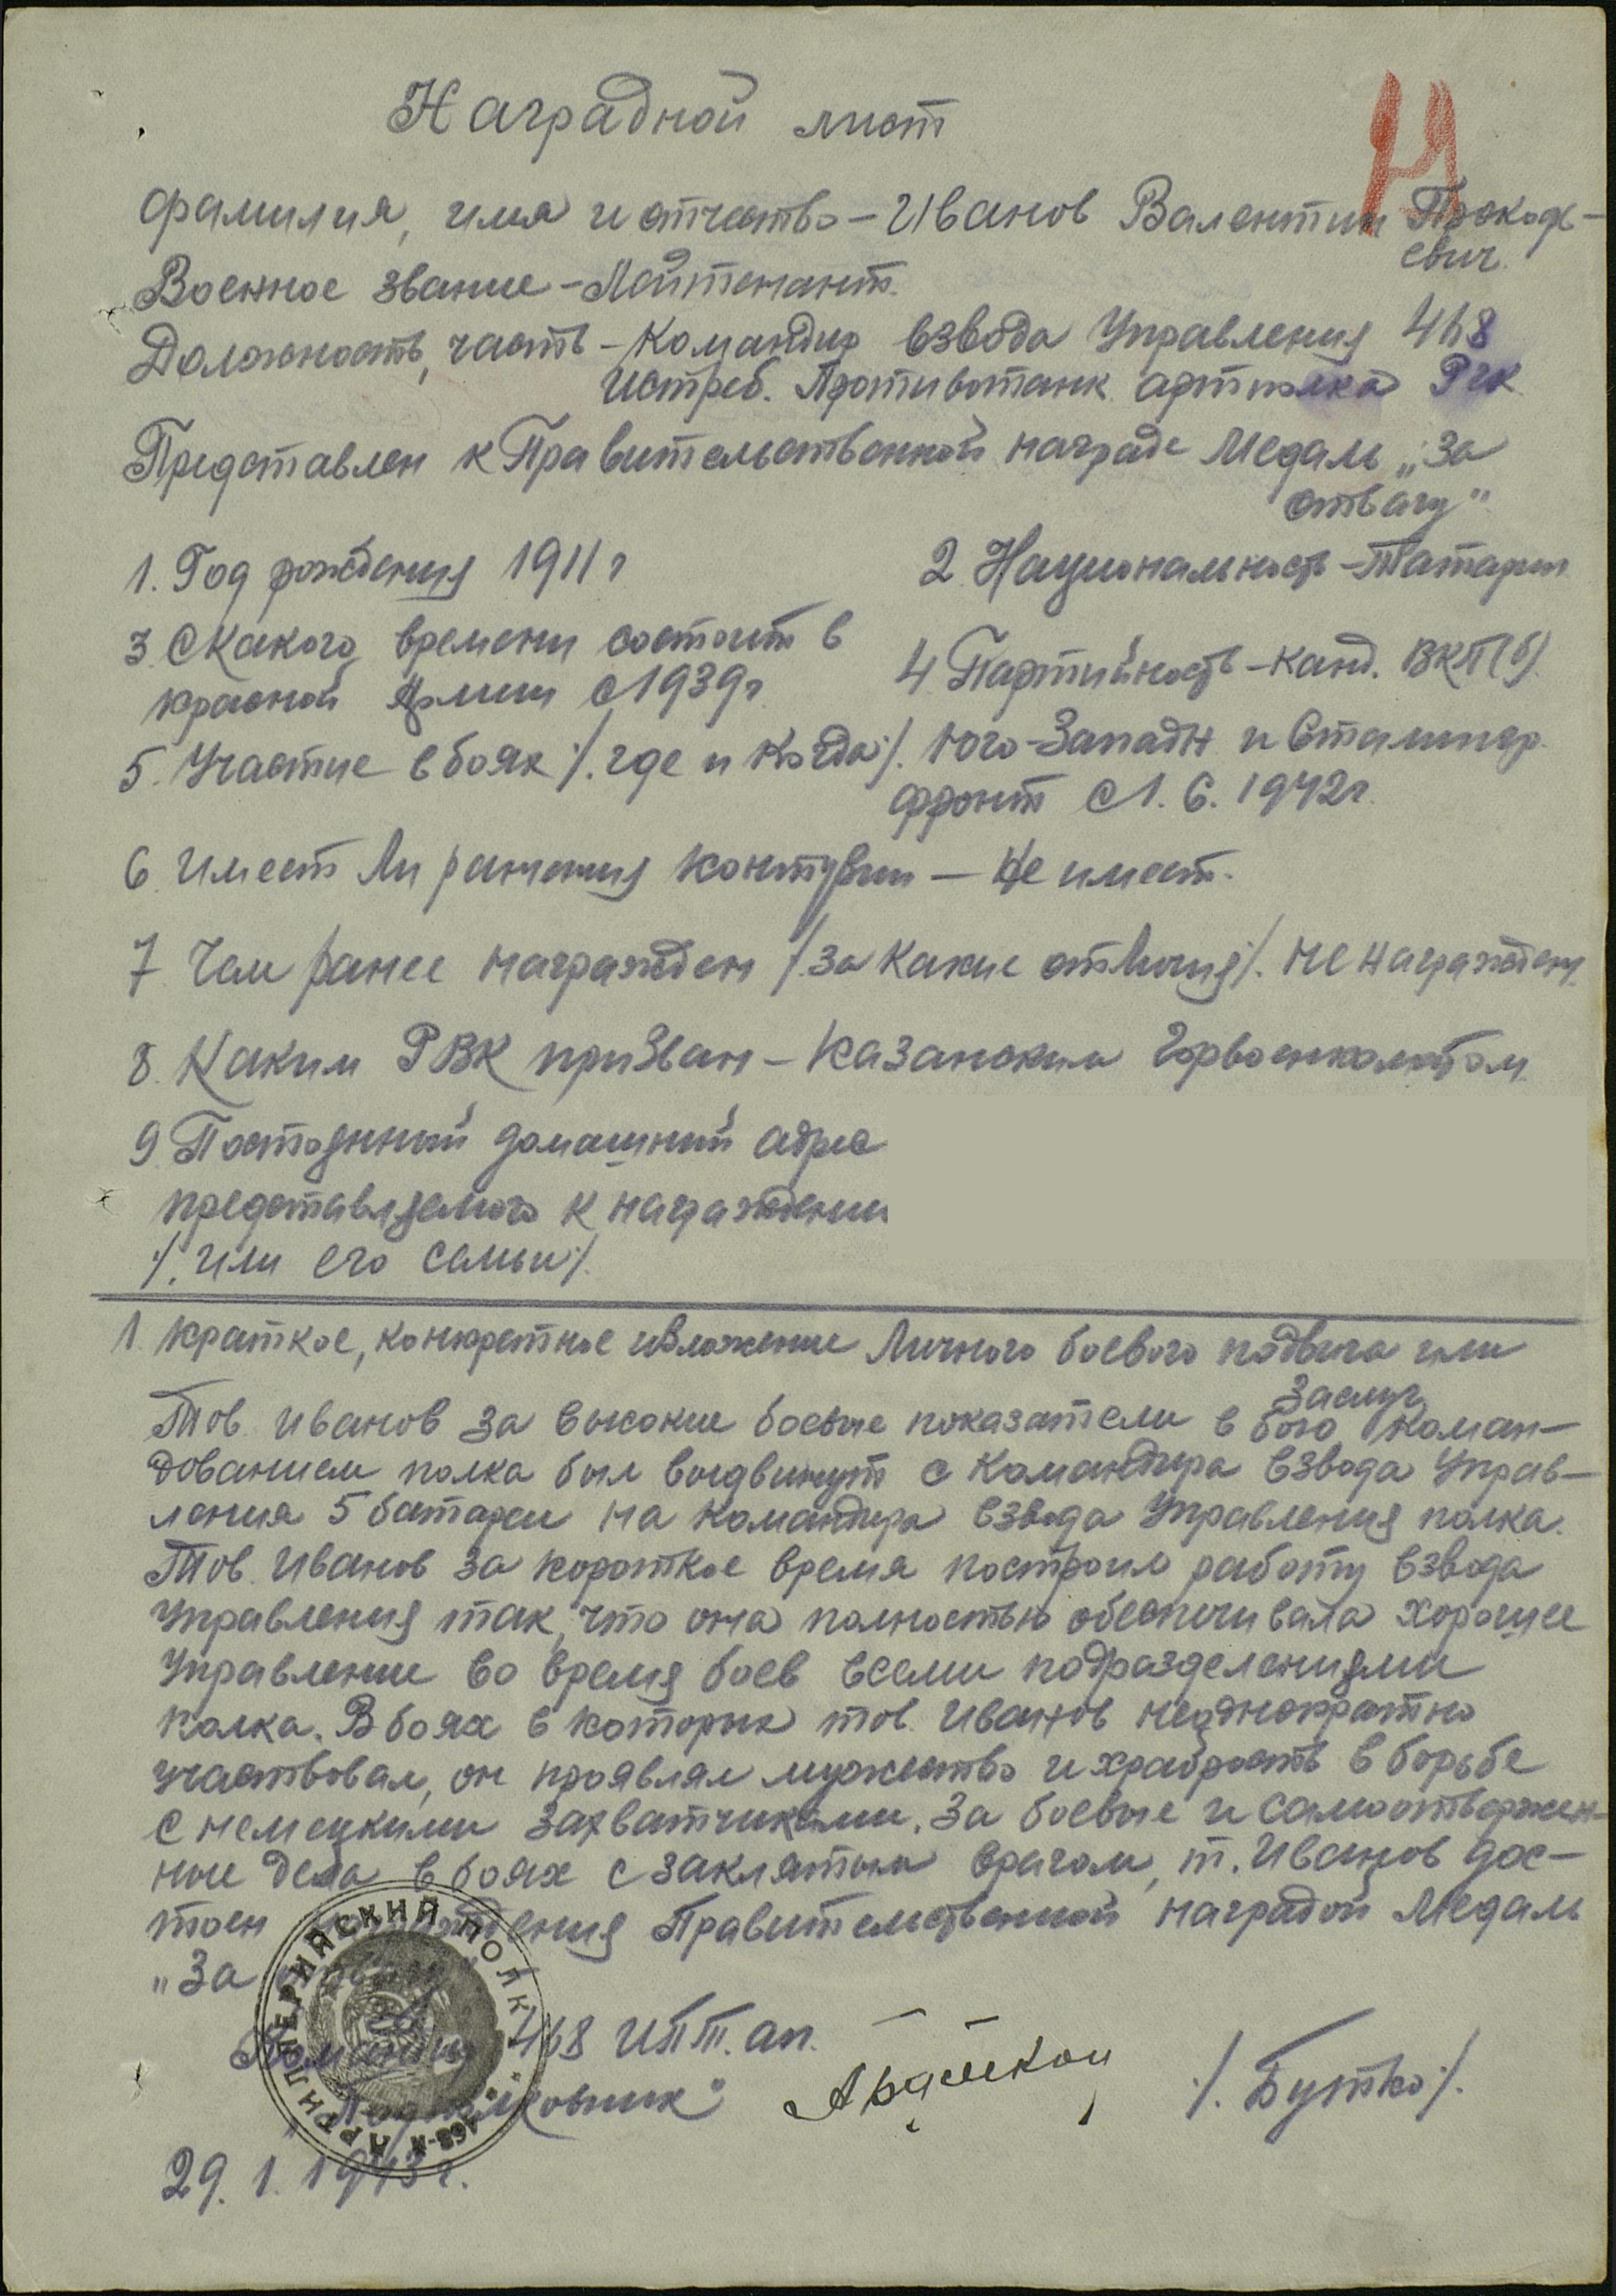 Наградной лист
Фамилия, имя и отчество – Иванов Валентин Прокофь-
евич.
Военное звание – Лейтенант.
Должность, часть – Командир взвода Управления 468
Истреб. Противотанк. артполка РГК
Представлен к Правительственной награде Медаль „За
отвагу"
1. Год рождения 1911 г
2. Национальность – Татарин
3. С какого времени состоит в
красной Армии с 1939г
4 Партийность – канд. ВКП(б)
5. Участие в боях /. где и когда ./. Юго-Западн. и Сталингр.
фронт с 1. 6. 1942г.
6. Имеет ли ранения контузии – Не имеет.
7 Чем ранее награжден /. за какие отличия ./. не награжден.
8. Каким РВК призван – Казанским Горвоенкоматом.
9 Постоянный домашний адрес
представляемого к награждению
/. или его семьи ./.
1. Краткое, конкретное изложение личного боевого подвига или
заслуг
Тов. Иванов за высокие боевые показатели в бою коман-
дованием полка был выдвинут с Командира взвода Управ-
ления 5 батареи на командира взвода Управления полка.
Тов. Иванов за короткое время построил работу взвода
Управления так, что она полностью обеспечивала хорошее
Управление во время боев всеми подразделениями
полка. В боях в которых тов. Иванов неоднократно
участвовал, он проявлял мужество и храбрость в борьбе
с немецкими захватчиками. За боевые и самоотвержен-
ные дела в боях с заклятым врагом, т. Иванов дос-
тоен награждения Правительственной наградой Медаль
„За отвагу"
Командир 468 ИПТ. ап.
Подполковник
/. Бутко ./.
29. 1. 1943 г.
АРТИЛЛЕРИЙСКИЙ ПОЛК
468-й